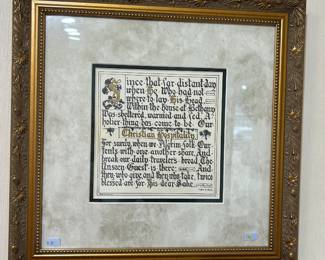 Since that far distant day
when He Who had not
where to lay His Head,
Within the house at Bethany
Was sheltered, warmed and fed, A
holier thing has come to be Our
Christian Hospitality.
For surely, when we Pilgrim folk Our
tents with one another share, And
break our daily travelers bread The
Unseen Guest is there; And
they who give and they who take, twice
blessed are for His dear Sake.